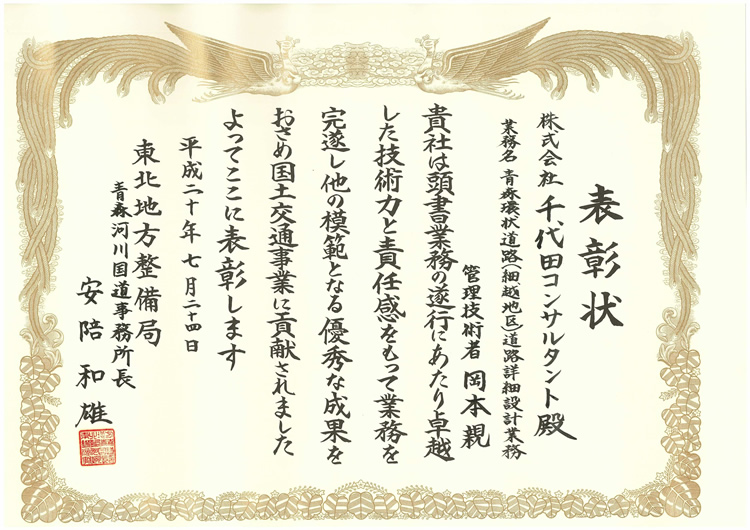 表彰状
株式会社 千代田コンサルタント 殿
業務名 青森環状道路(細越地区)道路詳細設計業務
管理技術者 岡本 親
貴社は頭書業務の遂行にあたり卓越
した技術力と責任感をもって業務を
完遂し他の模範となる優秀な成果を
おさめ国土交通事業に貢献されました
よってここに表彰します
平成二十年七月二十四日
東北地方整備局
青森河川国道事務所長
安陪和雄